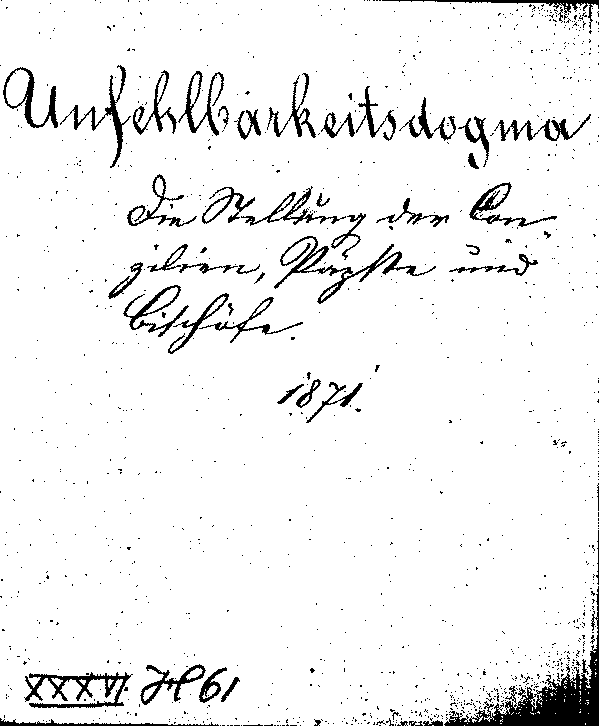 Unfehlbarkeitsdogma
Die Stellung der Con-
zilien, Päpste und
Bischöfe.
1871.
XXXVI. H 61